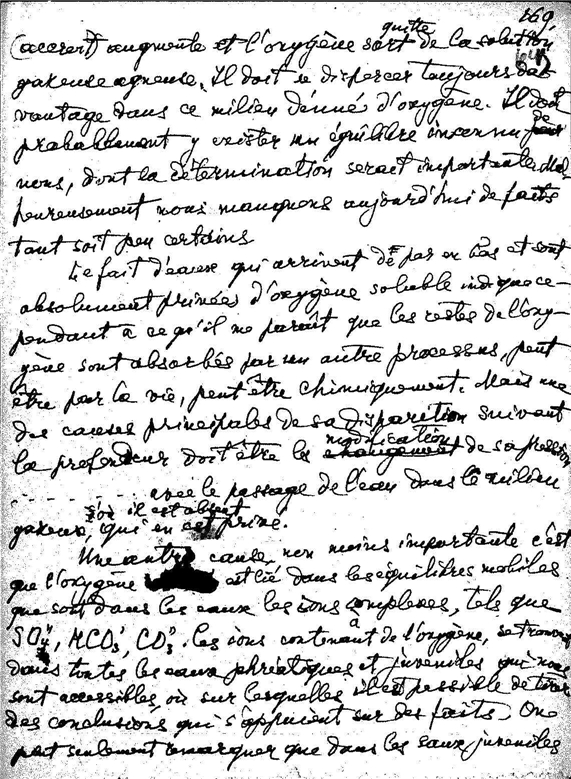 269
(accroit) augmente et l'oxygène sort quitte de la solution
gazeuse aqueuse. Il doit se disperser toujours da-
vantage dans ce milieu dénué d'oxygène. Il doit
probablement y exister un équilibre inconnu de
nous, dont la détermination serait importante. Mal-
heureusement nous manquons aujourd'hui de faits
tant soit peu certains.
Le fait d'eaux qui arrivent de par en bas et sont
absolument privées d'oxygène soluble indique ce-
pendant à ce qu'il me paraît que les restes de l'oxy-
gène sont absorbés par un autre processus, peut
être par la vie, peut être chimiquement. Mais une
des causes principales de sa disparition suivant
la profondeur doit être les changement modification de sa pression
avec le passage de l'eau dans le milieu
gazeux, d'où il est absent qui en est privé.
Une autre cause, non moins importante c'est
que l'oxygène est lié dans les équilibres mobiles
que sont dans les eaux les ions complexes, tels que
SO₄", HCO₃', CO₃". Les ions contenant de l'oxygène, se trouvent
dans toutes les eaux phréatiques et juveniles qui nous
sont accessibles, où sur lesquelles il est possible de tirer
des conclusions qui s'appuient sur des faits. On
peut seulement remarquer que dans les eaux juveniles